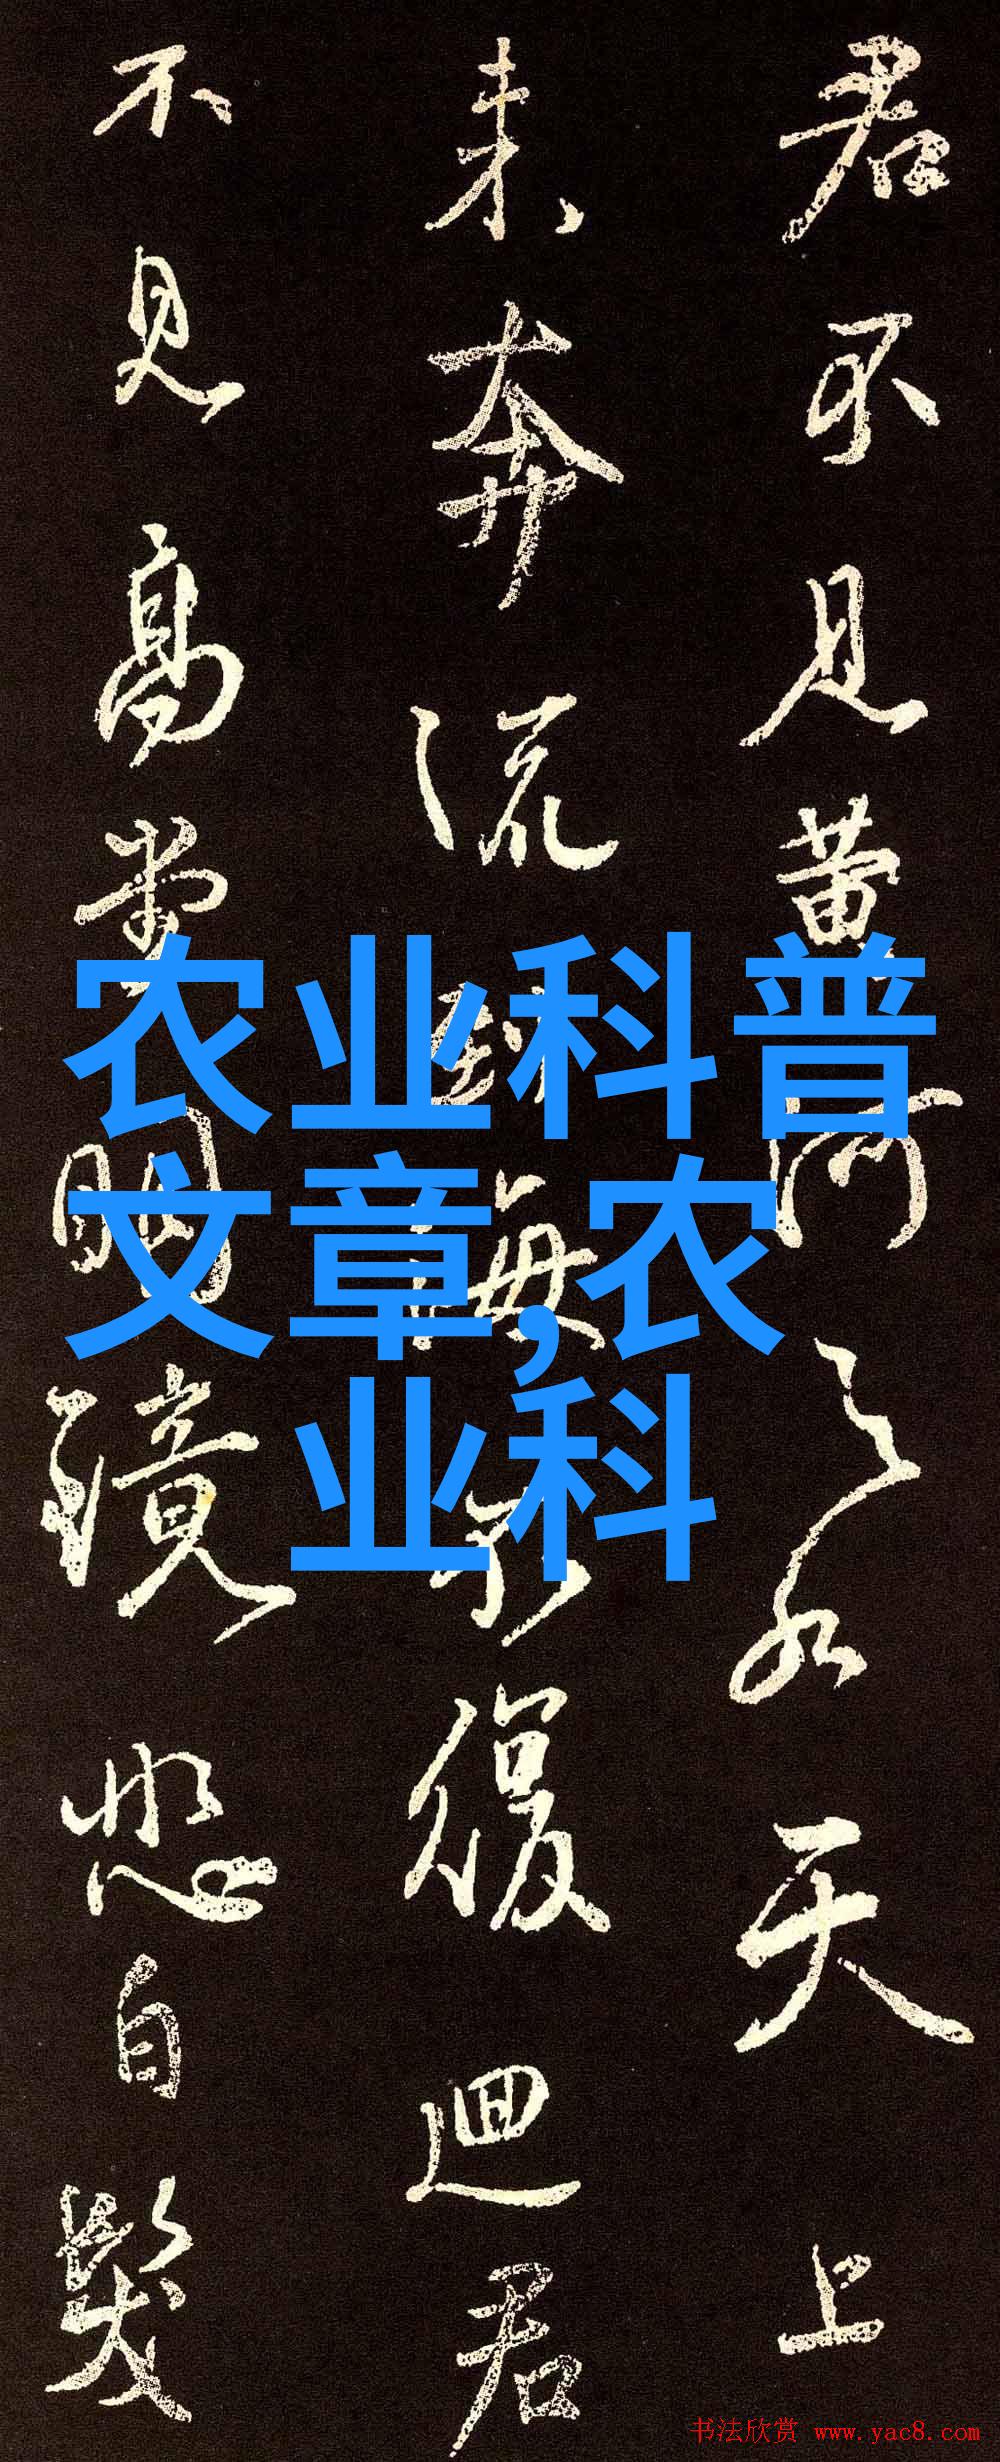 君不見黄河之水天上
来奔流到海不復迴君
不見高堂明鏡悲白髮
农业科普
文章,农
业科
书法欣赏 www.yac8.com